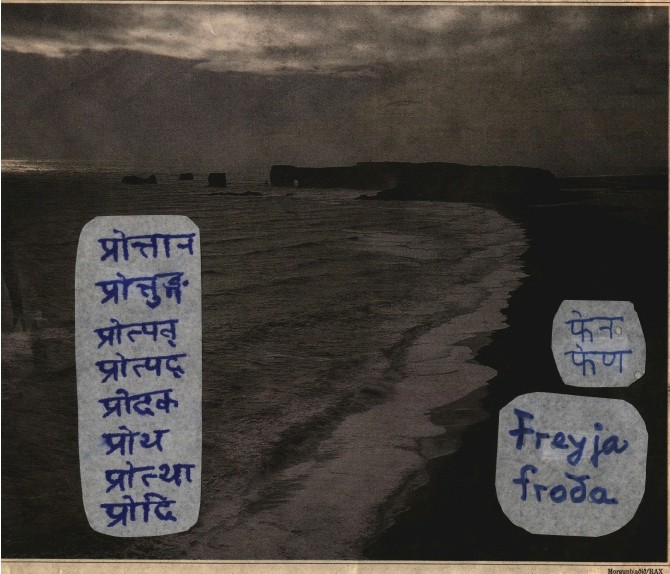 प्रोत्तान
प्रोत्तुङ्ग
प्रोत्पत्
प्रोत्पद्
प्रोदक
प्रोथ
प्रोत्था
प्रोदि
फेन
फेण
Freyja
froða
Morgunblaðið/RAX